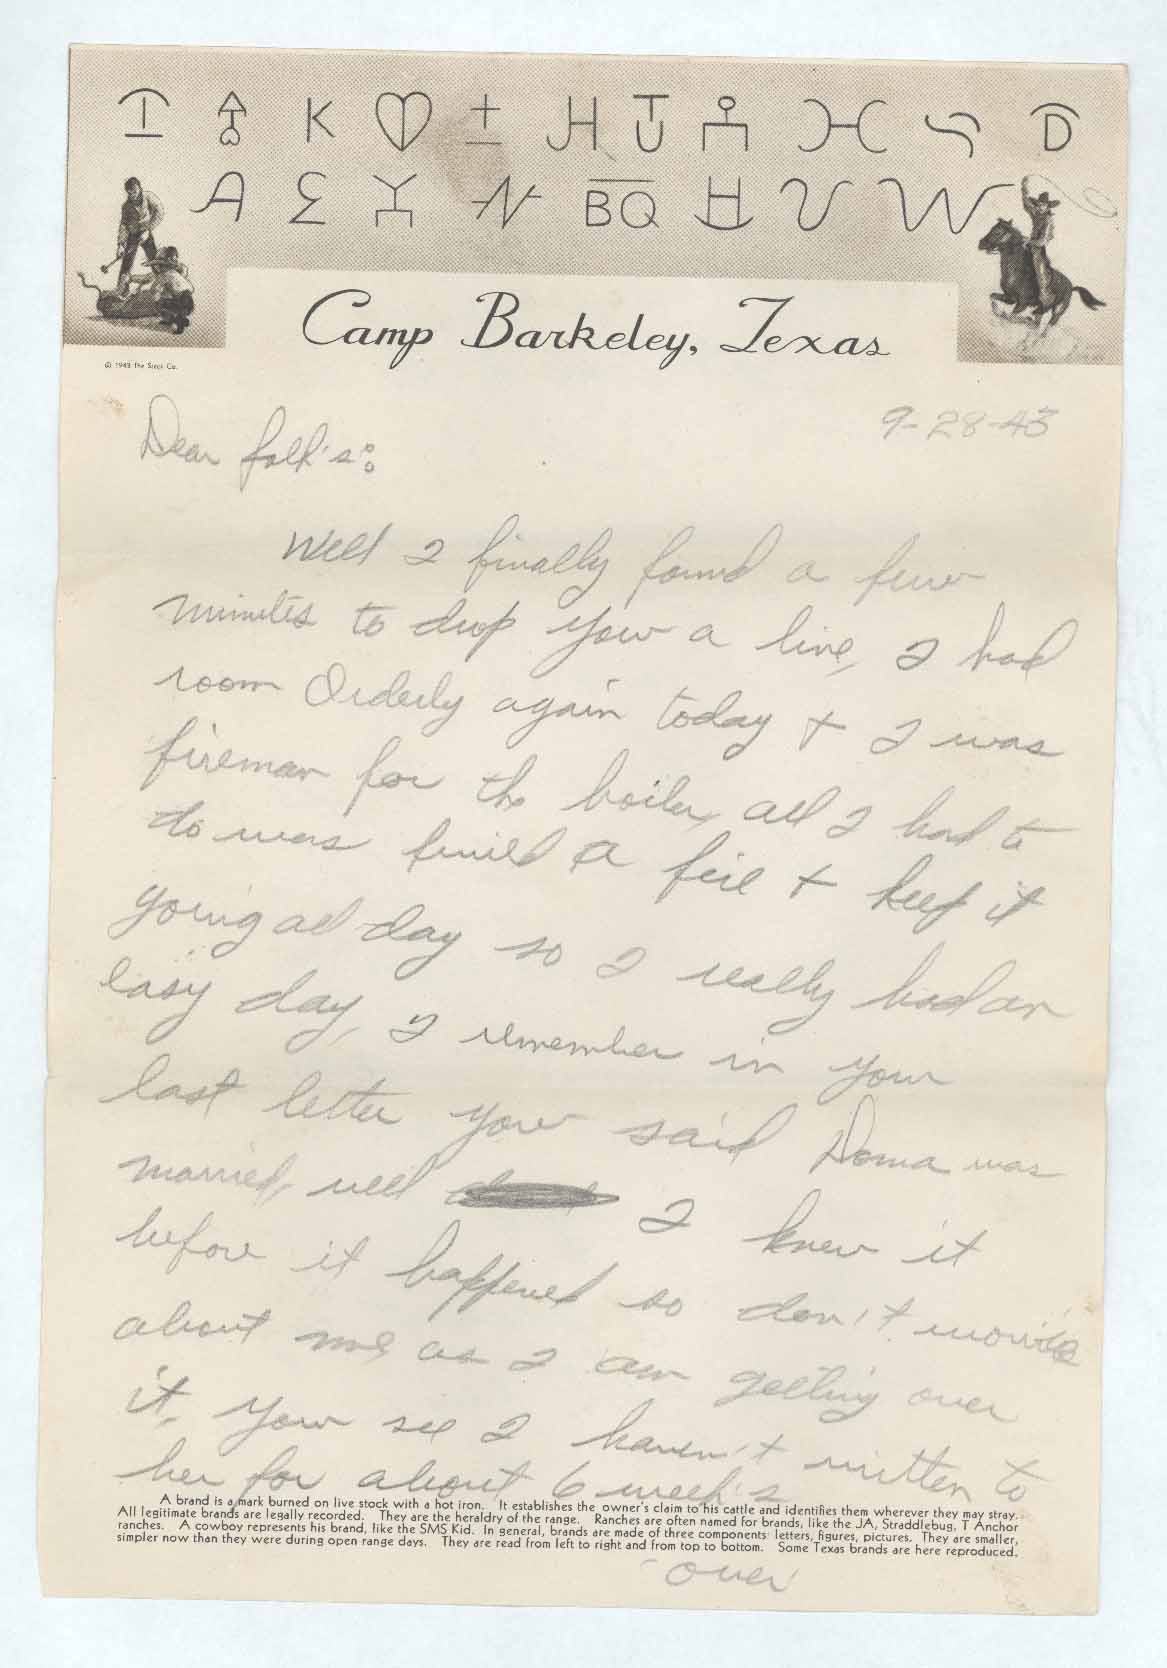 Camp Barkeley, Texas
© 1943 The Steck Co.
9-28-43
Dear folk's:
Well I finally found a few
minutes to drop you a line, I had
room Orderly again today + I was
fireman for the boiler, all I had to
do was build a fire + keep it
going all day so I really had an
easy day, I remember in your
last letter you said Doma was
married, well I knew it
before it happened so don't
about me as I am getting over
it. You see I haven't written to
her for about 6 week's
A brand is a mark burned on live stock with a hot iron. It establishes the owner's claim to his cattle and identifies them wherever they may stray.
All legitimate brands are legally recorded. They are the heraldry of the range. Ranches are often named for brands, like the JA, Straddlebug, T Anchor
ranches. A cowboy represents his brand, like the SMS Kid. In general, brands are made of three components: letters, figures, pictures. They are smaller,
simpler now than they were during open range days. They are read from left to right and from top to bottom. Some Texas brands are here reproduced.
over